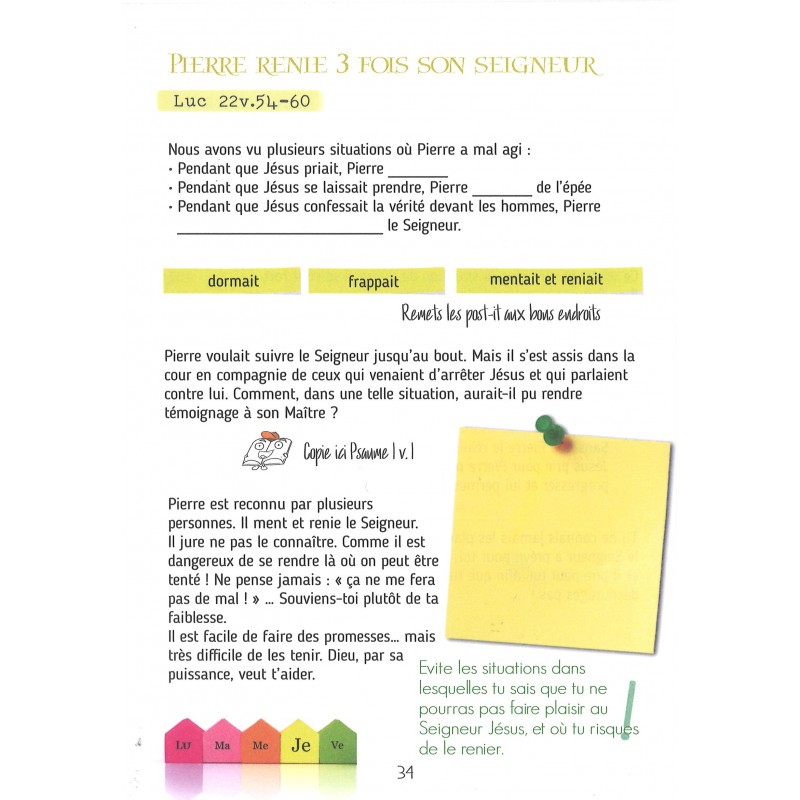 PIERRE RENIE 3 FOIS SON SEIGNEUR
Luc 22v.54-60
Nous avons vu plusieurs situations où Pierre a mal agi :
• Pendant que Jésus priait, Pierre _______
• Pendant que Jésus se laissait prendre, Pierre _______ de l'épée
• Pendant que Jésus confessait la vérité devant les hommes, Pierre
________________________ le Seigneur.
dormait
frappait
mentait et reniait
Remets les post-it aux bons endroits
Pierre voulait suivre le Seigneur jusqu'au bout. Mais il s'est assis dans la
cour en compagnie de ceux qui venaient d'arrêter Jésus et qui parlaient
contre lui. Comment, dans une telle situation, aurait-il pu rendre
témoignage à son Maître ?
Copie ici Psaume 1 v. 1
Pierre est reconnu par plusieurs
personnes. Il ment et renie le Seigneur.
Il jure ne pas le connaître. Comme il est
dangereux de se rendre là où on peut être
tenté ! Ne pense jamais : « ça ne me fera
pas de mal ! » ... Souviens-toi plutôt de ta
faiblesse.
Il est facile de faire des promesses... mais
très difficile de les tenir. Dieu, par sa
puissance, veut t'aider.
Evite les situations dans
lesquelles tu sais que tu ne
pourras pas faire plaisir au
Seigneur Jésus, et où tu risques
de le renier.
!
LU Ma Me Je Ve
34